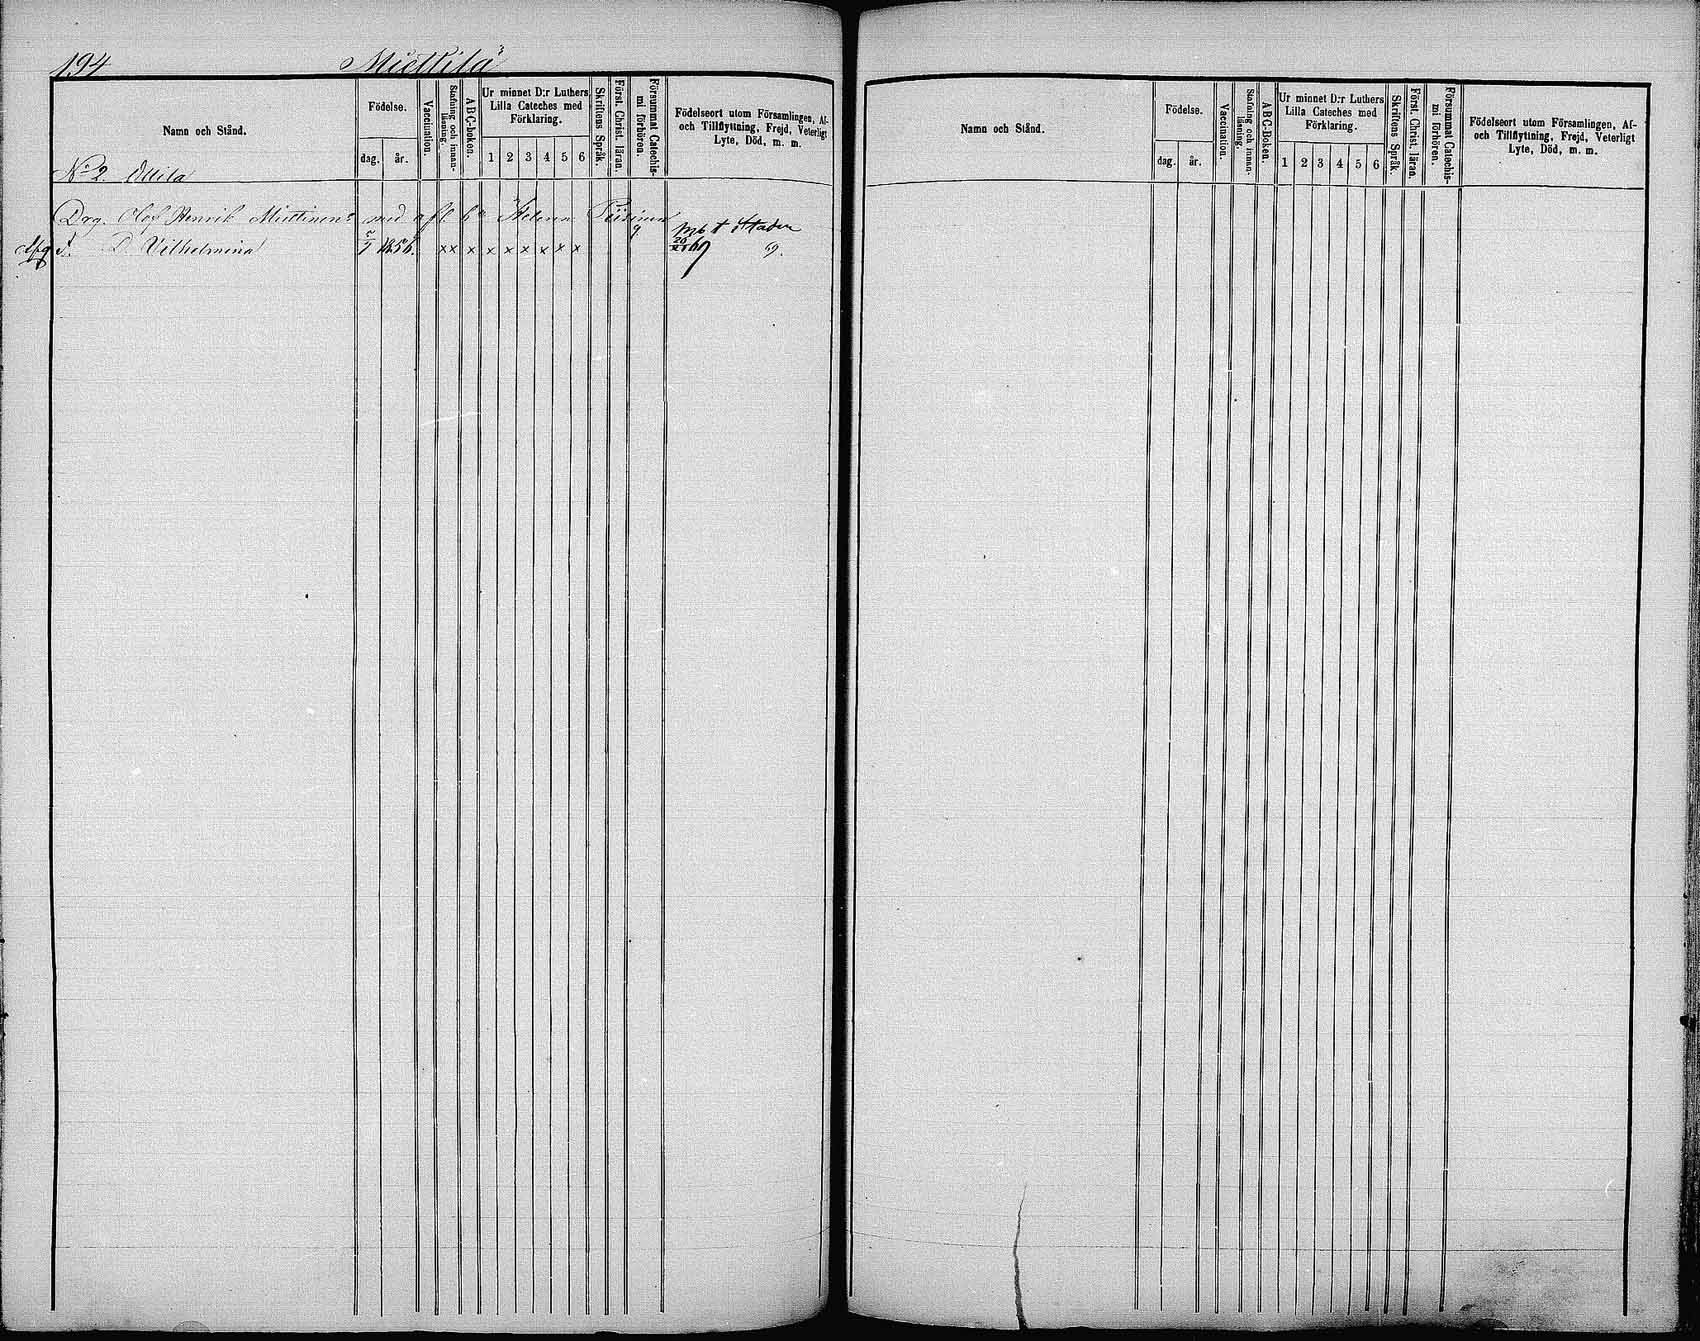 194 Miettilä
Namn och Stånd.
Födelse.
dag. år.
Vaccination.
Stafning och innan-läsning.
ABC-boken.
Ur minnet D:r Luthers
Lilla Cateches med
Förklaring.
1 2 3 4 5 6
Skriftens Språk.
Först. Christ. läran.
Försummat Catechis-
mi förhören.
Födelseort utom Församlingen, Af-
och Tillflyttning, Frejd, Veterligt
Lyte, Död, m. m.
No 2. Ollila
Drg. Olof Henrik Miettinens med afl. h. Helena Piisinen
D. Vilhelmina 5/7 1856. x x x x x x x x x 9. 20/XI 69
Namn och Stånd.
Födelse.
dag. år.
Vaccination.
Stafning och innan-
läsning.
ABC-Boken.
Ur minnet D:r Luthers
Lilla Cateches med
Förklaring.
1 2 3 4 5 6
Skriftens Språk.
Först. Christ. läran.
Försummat Catechis-
mi förhören.
Födelseort utom Församlingen, Af-
och Tillflyttning, Frejd, Veterligt
Lyte, Död, m. m.